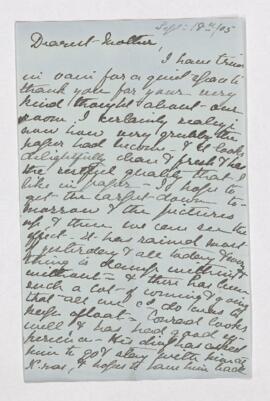 Sept. 18th/05
Dearest Mother,
I have tried
in vain for a quiet space to
thank you for your very
kind thought about our
room. I certainly realize
now how very grubby the
paper had become - & it looks
delightfully clean & fresh & has
the restful quality that I
like in paper - I hope to
get the carpet down to-
morrow & the pictures
up & then we can see the
effect - It has rained most
of yesterday & all today & every
thing is damp within &
without - & there has been
such a lot of coming & going
that - all one can do is to
keep afloat - Conrad looks
well & has had good
him to go & stay with
& hopes to have him back